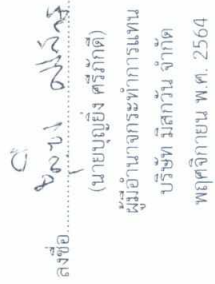 ลงชื่อ
(นายบุญยิ่ง ศรีภักดี)
ผู้มีอำนาจกระทำการแทน
บริษัท มิสกวัน จำกัด
พฤศจิกายน พ.ศ. 2564